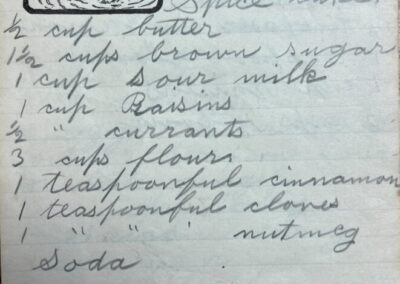 Spice
½ cup butter
1½ cups brown sugar
1 cup sour milk
1 cup Raisins
½ " currants
3 cups flour
1 teaspoonful cinnamon
1 teaspoonful cloves
1 " " nutmeg
Soda